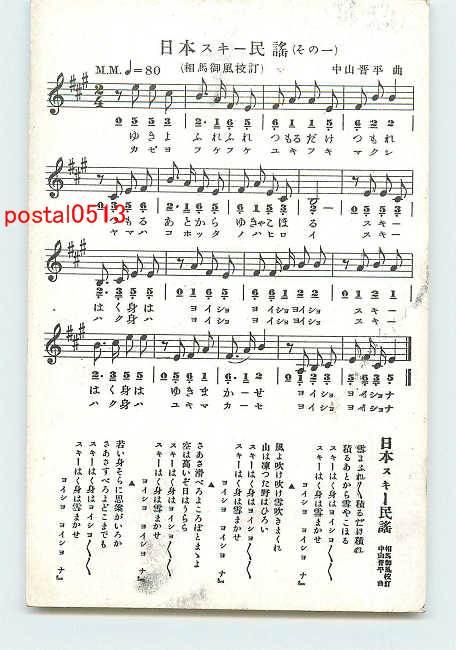 日本スキー民謡(その一)
M.M. ♩=80 (相馬御風校訂) 中山晋平 曲
ゆきよ ふれふれ つもるだけ つもれ
カゼヨ フケフケ ユキフキ マクレ
つもる あとから ゆきやこほる スキー
ヤマハ コホッタ ノハヒロイ スキー
postal0513
はく身は ヨイショ ヨイショヨイショ スキー
ハク身ハ ヨイショ ヨイショヨイショ スキー
はく身は ゆきま かーせ ヨイショ ヨイショナ
日本スキー民謡
相馬御風校訂
中山晋平曲
雪よふれ〱積るだけ積れ
積るあとから雪やこほる
スキーはく身はヨイショ〱〱
スキーはく身は雪まかせ
ヨイショ ヨイショ ナ
風よ吹け吹け雪吹きまくれ
山は凍つた野はひろい
スキーはく身はヨイショ〱〱
スキーはく身は雪まかせ
ヨイショ ヨイショ ナ
さあさ滑べろよころばとまゝよ
空は高いぞ日はうらら
スキーはく身はヨイショ〱〱
スキーはく身は雪まかせ
ヨイショ ヨイショ ナ
若い身そらに思案がいろか
さあさすべろよどこまでも
スキーはく身はヨイショ〱〱
スキーはく身は雪まかせ
ヨイショ ヨイショ ナ